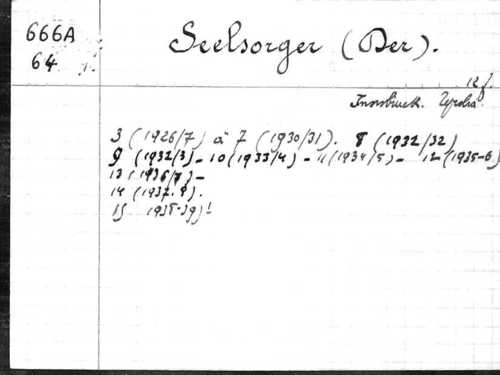 666A
64
Seelsorger (Der).
12 f.
Innsbruck. Tyrolia.
3 (1926/7) à 7 (1930/31). 8 (1932/32)
9 (1932/3) - 10 (1933/4) - 11 (1934/5) - 12 (1935-6)
13 (1936/7) -
14 (1937-8).
15 1938-39)!